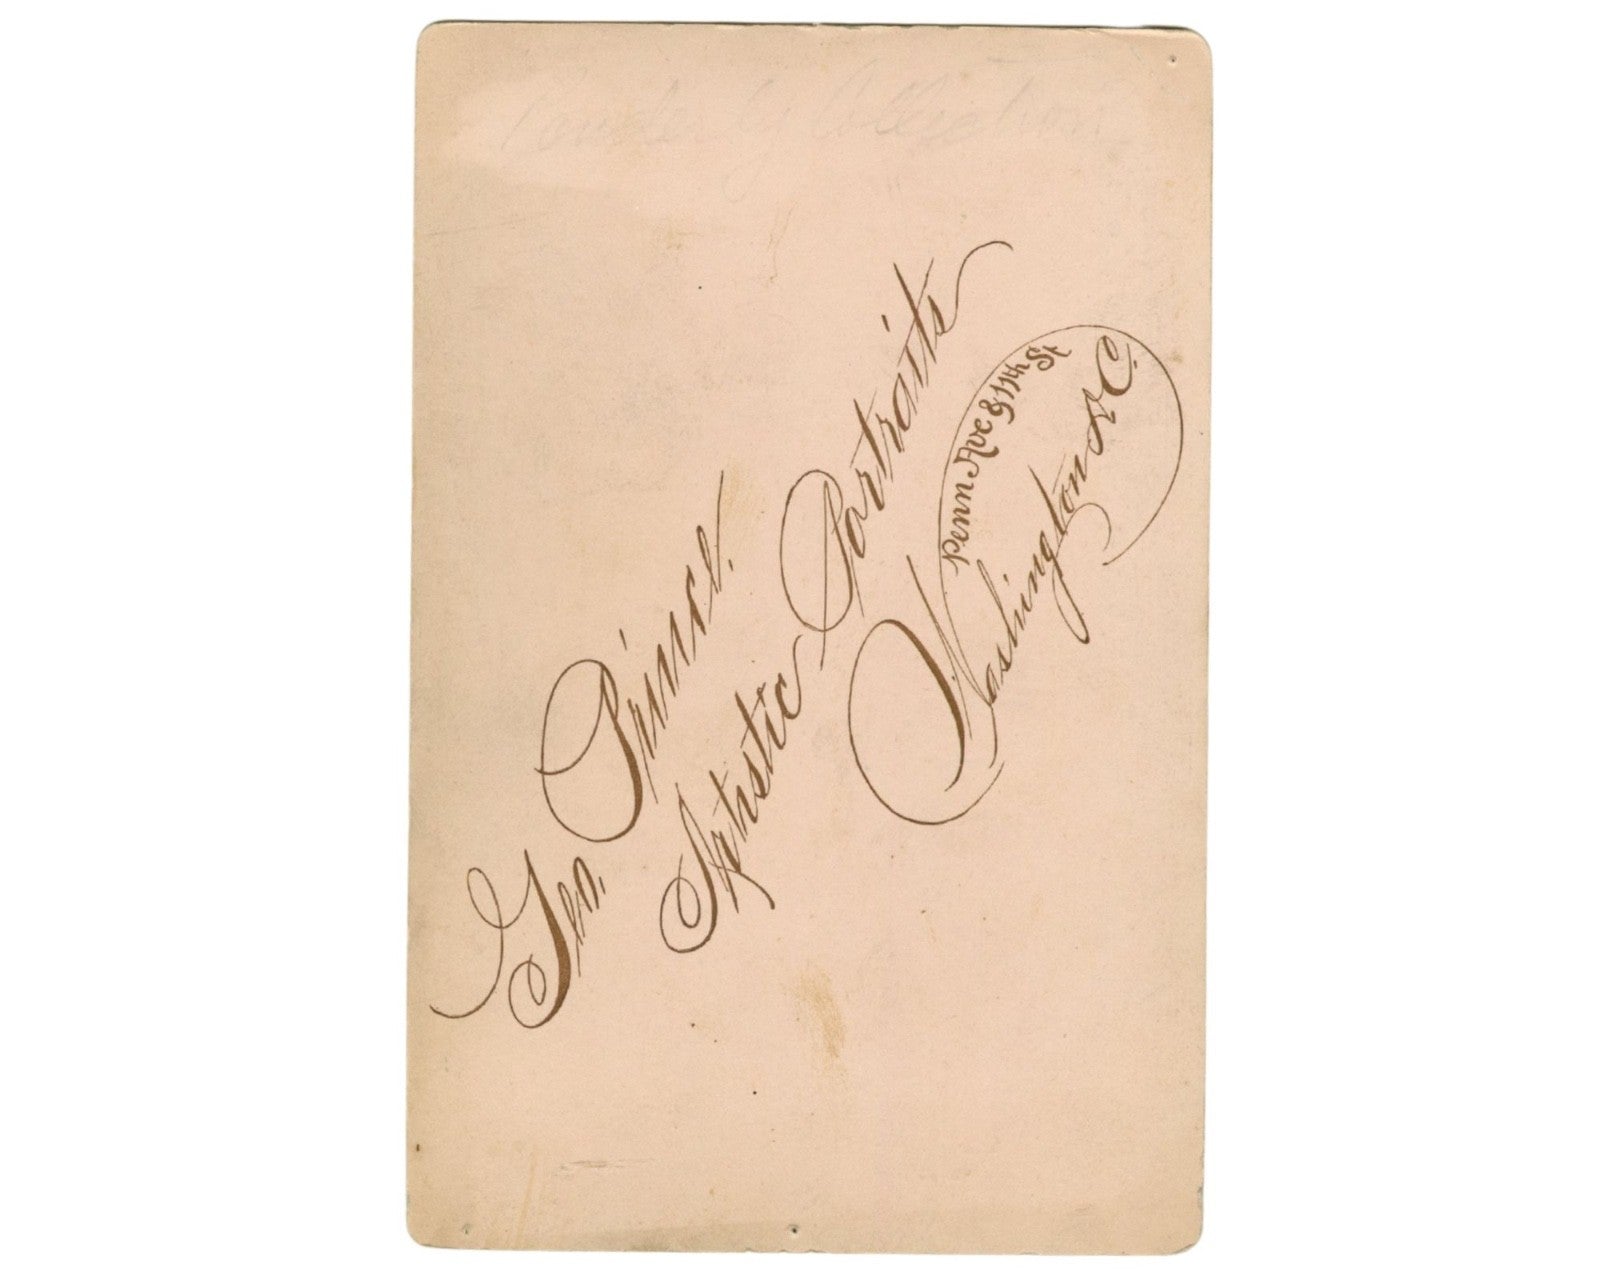 Collection
Geo. Prince.
Artistic Portraits
Penn Ave & 11th St
Washington D.C.